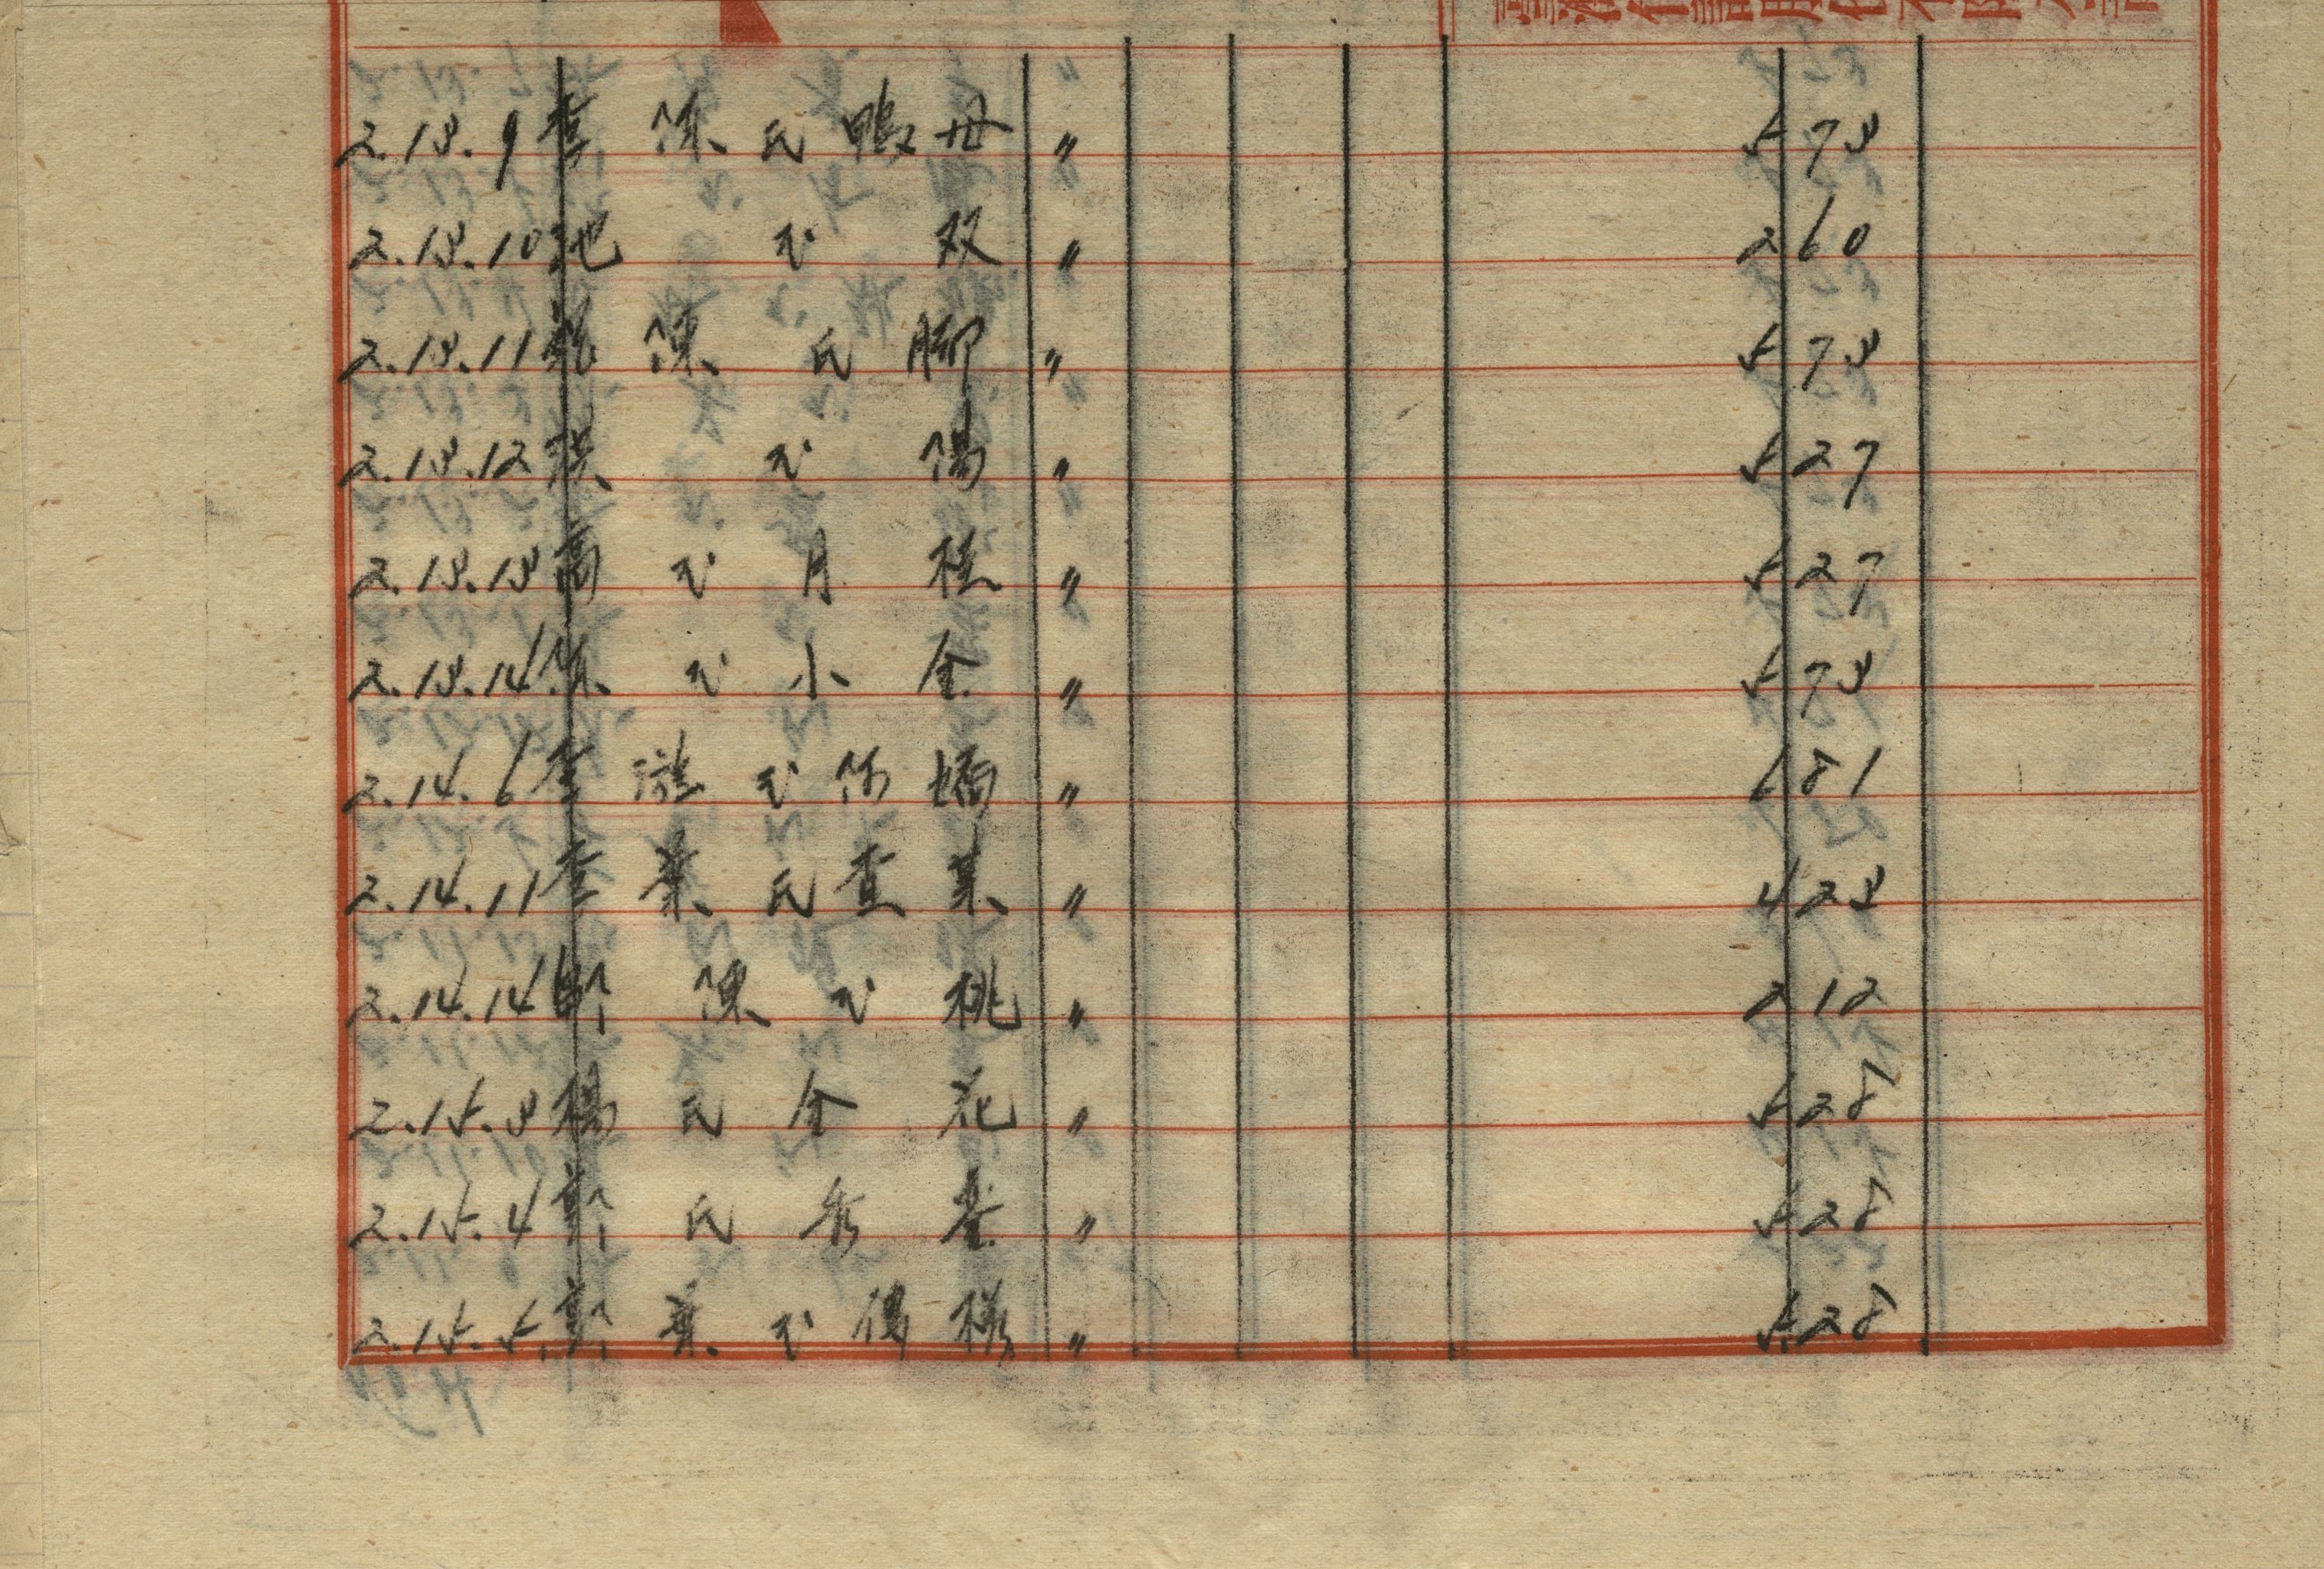 2.13.9 李陳氏鴨母 〃 5 73
2.13.10 池氏双 〃 2 60
2.13.11 陳氏脚 〃 5 73
2.13.12 氏 〃 5 27
2.13.13 高氏月桂 〃 5 27
2.13.14 氏小金 〃 5 73
2.14.6 李 氏 〃 6 81
2.14.11 李葉氏查某 〃 4 23
2.14.14 陳氏桃 〃 2 12
2.15.3 楊氏金花 〃 5 28
2.15.4 郭氏秀 〃 5 28
2.15.5 郭 氏 〃 5 28